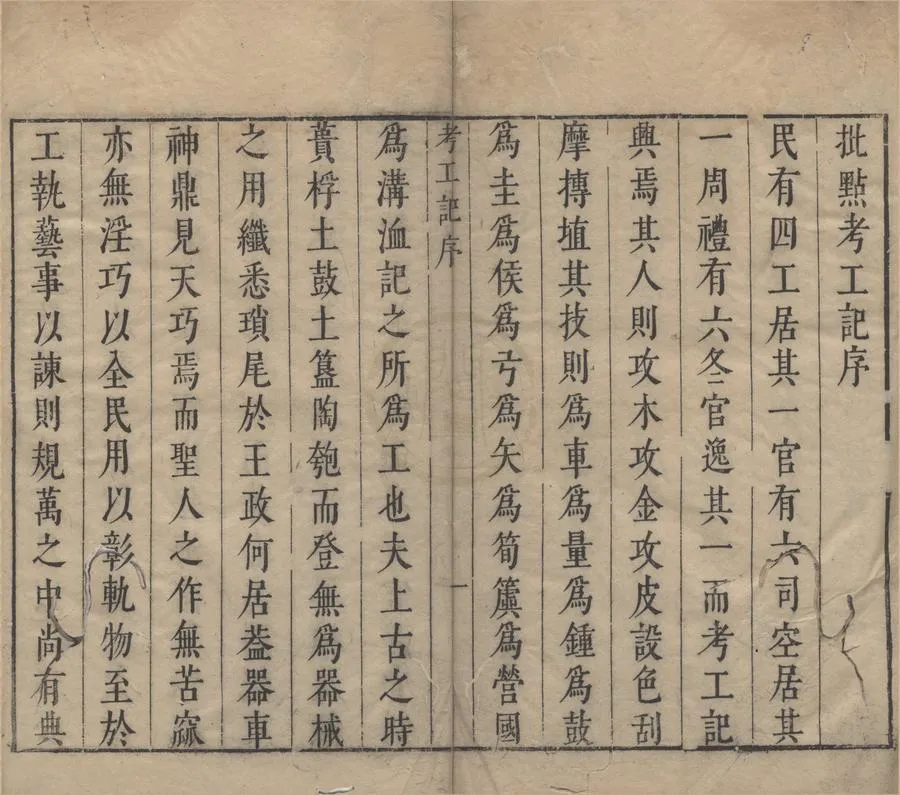 批點考工記序
民有四工居其一官有六司空居其
一周禮有六冬官逸其一而考工記
興焉其人則攻木攻金攻皮設色刮
摩摶埴其技則為車為量為鍾為鼓
為圭為侯為弓為矢為筍簴為營國
考工記序 一
為溝洫記之所為工也夫上古之時
蕢桴土鼓土簋陶匏而登無為器械
之用纖悉瑣尾於王政何居葢器車
神鼎見天巧焉而聖人之作無苦窳
亦無淫巧以全民用以彰軌物至於
工執藝事以諫則規萬之中尚有典